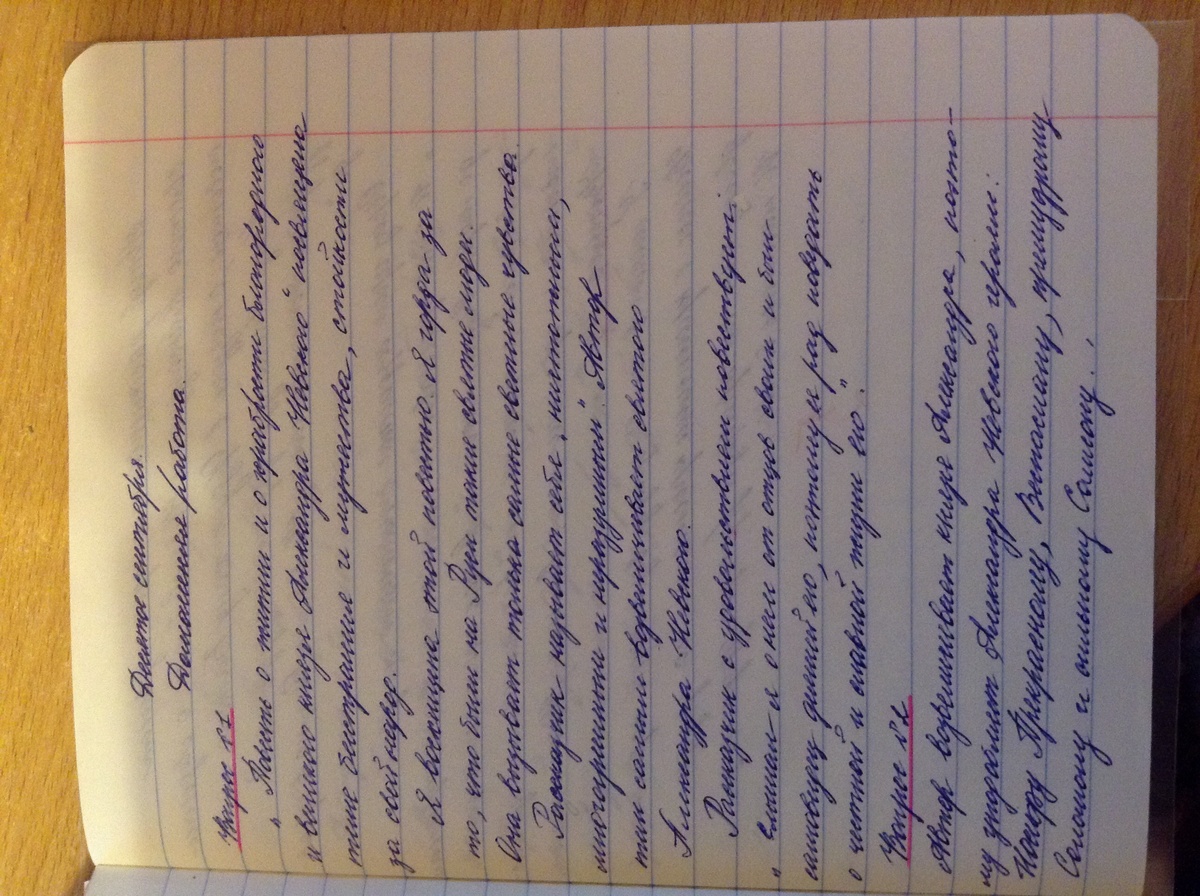 Девятое сентября.
Домашняя работа.
Вопрос №1
„Повесть о житии и о храбрости благоверного
и великого князя Александра Невского" посвящена
теме бесстрашия и мужества, стойкости
за свой народ.
Я восхищена этой повестью. Я горда за
то, что были на Руси такие светлые люди.
Она внушает только самые светлые чувства.
Рассказчик называет себя „ничтожным,
многогрешным и неразумным". Автор
тем самым возвеличивает святого
Александра Невского.
Рассказчик с удовольствием повествует:
„Слышал я о нем от отцов своих и был
самовидец деяний его, потому и рад поведать
о честной и славной жизни его".
Вопрос №2
Автор возвеличивает князя Александра, пото-
му уподобляет Александра Невского героям:
Иосифу Прекрасному, Веспасиану, премудрому
Соломону и сильному Самсону.